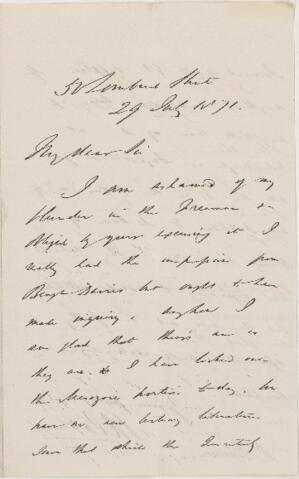 50 Lombard Street
29 July 1871.
My dear Sir
I am ashamed of my
blunder in the
by your excusing it I
really had the impression from
Davis but ought to have
made inquiry, anyhow I
am glad that things are as
they are. & I have looked over
the Mesozoic portion to day.
have no new
that while the